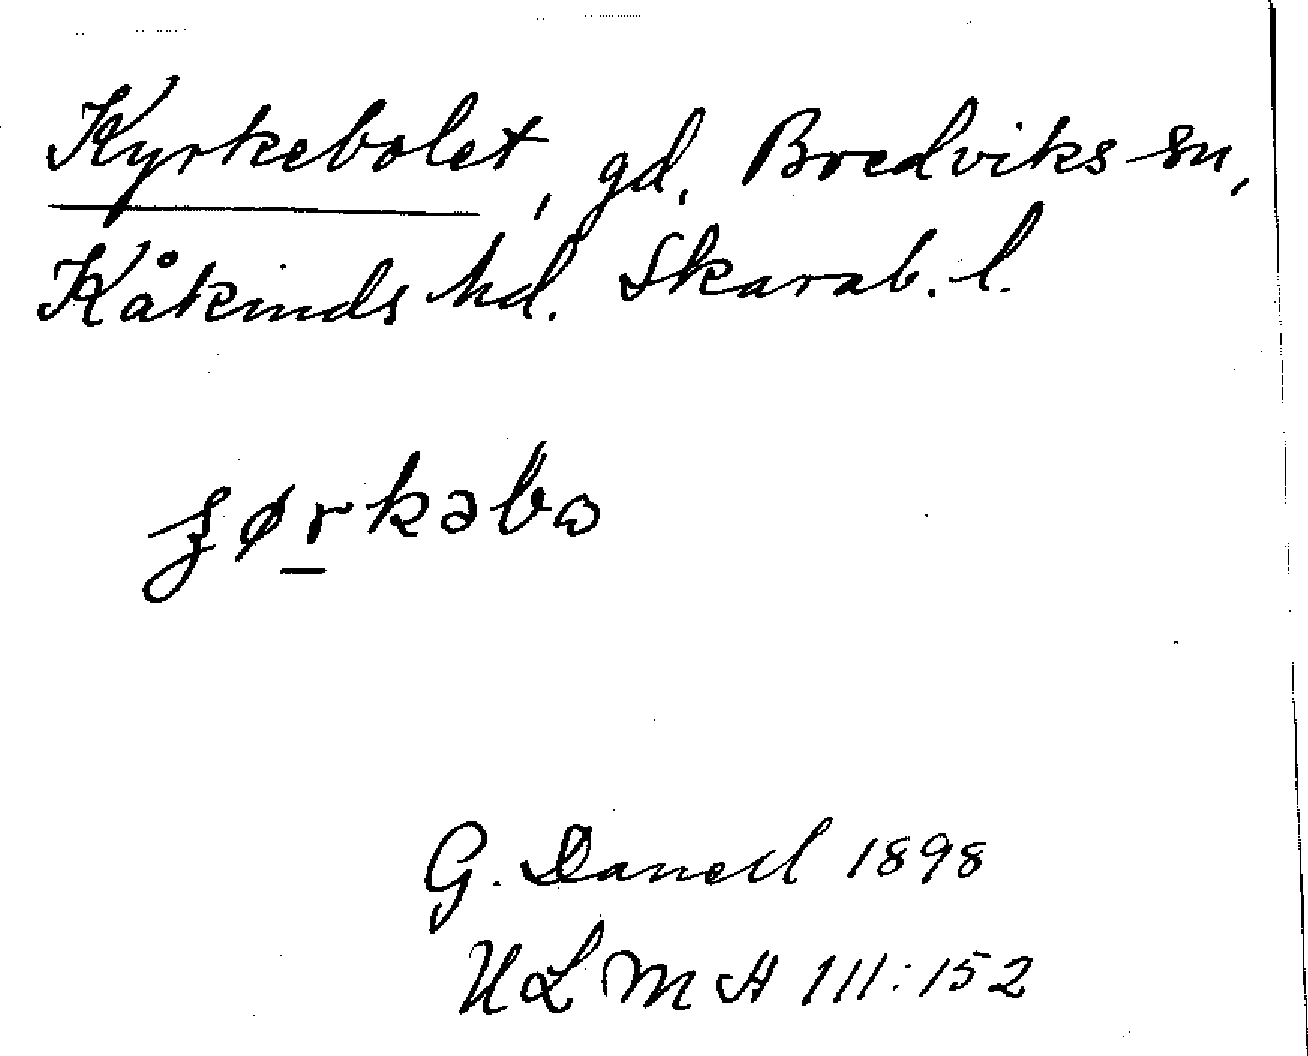 Kyrkebolet, gd, Bredviks sn,
Kåkinds hd. Skarab. l.
G. Danell 1898
ULMA 111:152